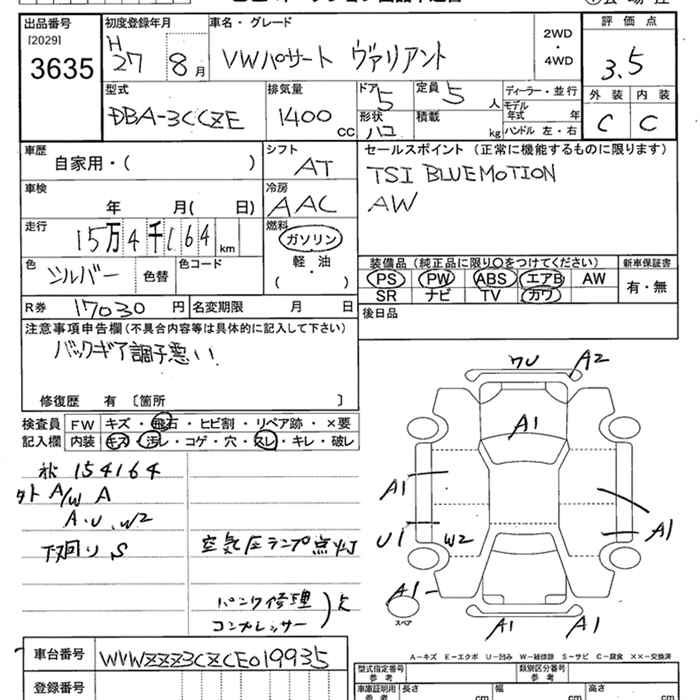 出品番号 初度登録年月 車名・グレード 評価点
[2029] 3635
H27 8月 VWパサート ヴァリアント 2WD・4WD 3.5
型式 排気量 ドア 5 定員 5人 ディーラー・並行 外装 内装
DBA-3CCZE 1400cc 形状 ハコ 積載 kg モデル年式 年 ハンドル 左・右 C C
車歴 シフト セールスポイント (正常に機能するものに限ります)
自家用・( ) AT TSI BLUEMOTION
車検 冷房 AW
年 月( 日) AAC
走行 燃料
15万4千164km ガソリン
色 色コード 軽・油 装備品 (純正品に限り〇をつけてください) 新車保証書
シルバー 色替 ( ) PS PW ABS エアB AW 有・無
SR ナビ TV カワ
R券 17030円 名変期限 月 日 後日品
注意事項申告欄 (不具合内容等は具体的に記入して下さい)
バックギア調子悪い!
修復歴 有 〔箇所 〕
検査員 FW キズ・飛石・ヒビ割・リペア跡・×要
記入欄 内装 キズ・汚レ・コゲ・穴・スレ・キレ・破レ
154164
外 A/W A
A.U.W2
下廻り S
空気圧ランプ点灯
パンク修理
コンプレッサー 欠
ワレ A2
A1
A1 A1
U1 W2 A1
A1
スペア
A1 A1
A-キズ E-エクボ U-凹み W-補修跡 S-サビ C-腐食 XX-交換済
車台番号 WVWZZZ3CZCE019935 型式指定番号 参考 類別区分番号 参考
登録番号 車庫証明用 参考 長さ cm 幅 cm 高さ cm